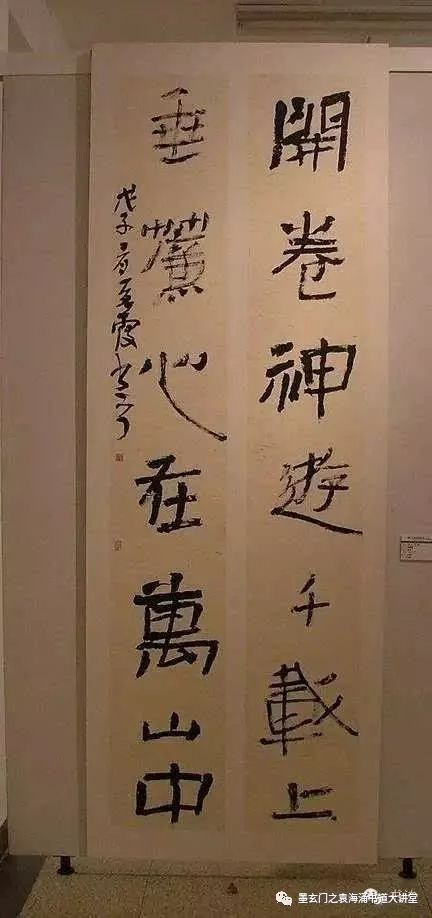 開卷神遊千載上
垂簾心在萬山中
戊子
墨玄门之袁海涌书道大讲堂